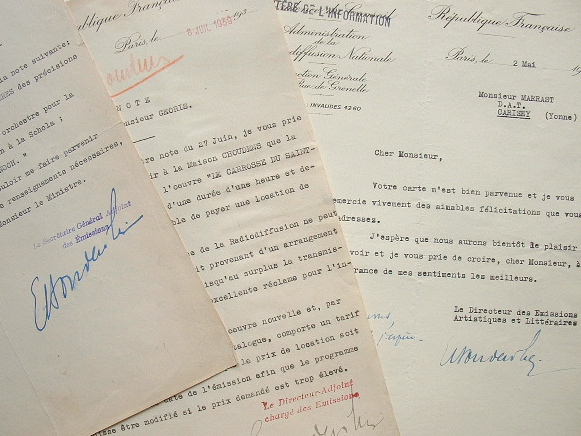 a note suivante:
des précisions
orchestre pour la
n à la Schola ;
ROCH. "
uloir me faire parvenir
renseignements nécessaires,
onsieur le Ministre.
Le Secrétaire Général Adjoint
des Émissions
République Française
Paris, le
6 JUIL 1939
193
NOTE
onsieur GEORIS.
re note du 27 Juin, je vous prie
ir à la Maison CHOUDENS que la
l'oeuvre "LE CARROSSE DU SAINT-
d'une durée d'une heure et de-
ble de payer une location de
e de la Radiodiffusion ne peut
it provenant d'un arrangement
squ'au surplus la transmis-
excellente réclame pour l'in-
oeuvre nouvelle et, par
talogue, comporte un tarif
e le prix de location soit
ate de l'émission afin que le programme
isse être modifié si le prix demandé est trop élevé.
Le Directeur-Adjoint
chargé des Emissions
TÈRE DE L'INFORMATION
Administration
de la
diffusion Nationale
ction Générale
ue de Grenelle
INVALIDES 4260
République Française
Paris, le 2 Mai 19
Monsieur MARRAST
D.A.T.
CARISEY (Yonne)
Cher Monsieur,
Votre carte m'est bien parvenue et je vous
emercie vivement des aimables félicitations que vous
adressez.
J'espère que nous aurons bientôt le plaisir
voir et je vous prie de croire, cher Monsieur, à
rance de mes sentiments les meilleurs.
Le Directeur des Emissions
Artistiques et Littéraires